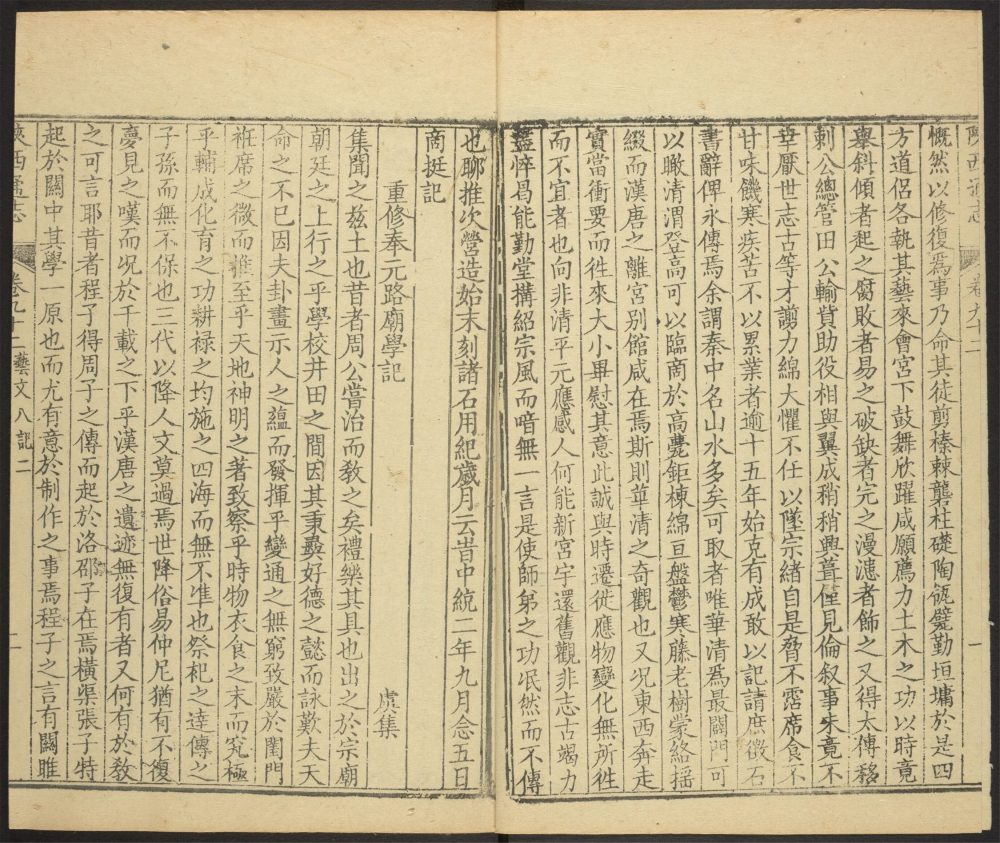 陝西通志 卷九十二 一
慨然以修復爲事乃命其徒剪榛棘礱柱礎陶瓴甓勤垣墉於是四
方道侶各執其藝來會宮下鼓舞欣躍咸願薦力土木之功以時竟
舉斜傾者起之腐敗者易之破缺者完之漫漶者飾之又得太傅移
剌公總管田公輸貲助役相與翼成稍稍興葺僅見倫叙事未竟不
幸厭世志古等才謭力綿大懼不任以墜宗緒自是脅不霑席食不
甘味饑寒疾苦不以累業者逾十五年始克有成敢以記請庶徵石
書辭俾永傳焉余謂秦中名山水多矣可取者唯華清爲最闢門可
以瞰清渭登高可以臨商於高甍鉅棟綿亘盤鬱寒藤老樹蒙絡揺
綴而漢唐之離宮別館咸在焉斯則華清之奇觀也又况東西奔走
實當衝要而徃來大小畢慰其意此誠與時遷徙應物變化無所徃
而不宜者也向非清平元應感人何能新宮宇還舊觀非志古竭力
盡悴曷能勤堂構紹宗風而喑無一言是使師弟之功泯然而不傳
也聊推次營造始末刻諸石用紀歲月云旹中統二年九月念五日
商挺記
重修奉元路廟學記 虞集
集聞之茲土也昔者周公嘗治而敎之矣禮樂其具也出之於宗廟
朝廷之上行之乎學校井田之間因其秉彞好德之懿而詠歎夫天
命之不已因夫卦畫示人之蘊而發揮乎變通之無窮致嚴於閨門
衽席之微而推至乎天地神明之著致察乎時物衣食之末而究極
乎輔成化育之功耕祿之均施之四海而無不準也祭祀之達傳之
子孫而無不保也三代以降人文莫過焉世降俗易仲尼猶有不復
夢見之嘆而况於千載之下乎漢唐之遺迹無復有者又何有於敎
之可言耶昔者程子得周子之傳而起於洛邵子在焉橫渠張子特
起於關中其學一原也而尤有意於制作之事焉程子之言有關雎
陝西通志 卷九十二 藝文八記二 一